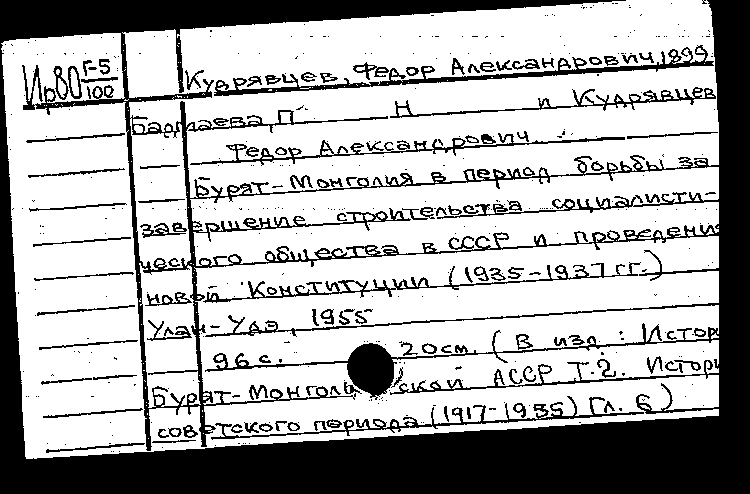 Ир80 Г-5/100
Кудрявцев, Федор Александрович, 1899
Бадмаева, П Н и Кудрявцев
Федор Александрович.
Бурят-Монголия в период борьбы за
завершение строительства социалисти-
ческого общества в СССР и проведени
новой Конституции (1935-1937 гг.)
Улан-Удэ, 1955
96 с. 20 см. (В изд: Истори
Бурят-Монгольской АССР Т.2. Истори
советского периода (1917-1955) Гл. 6)